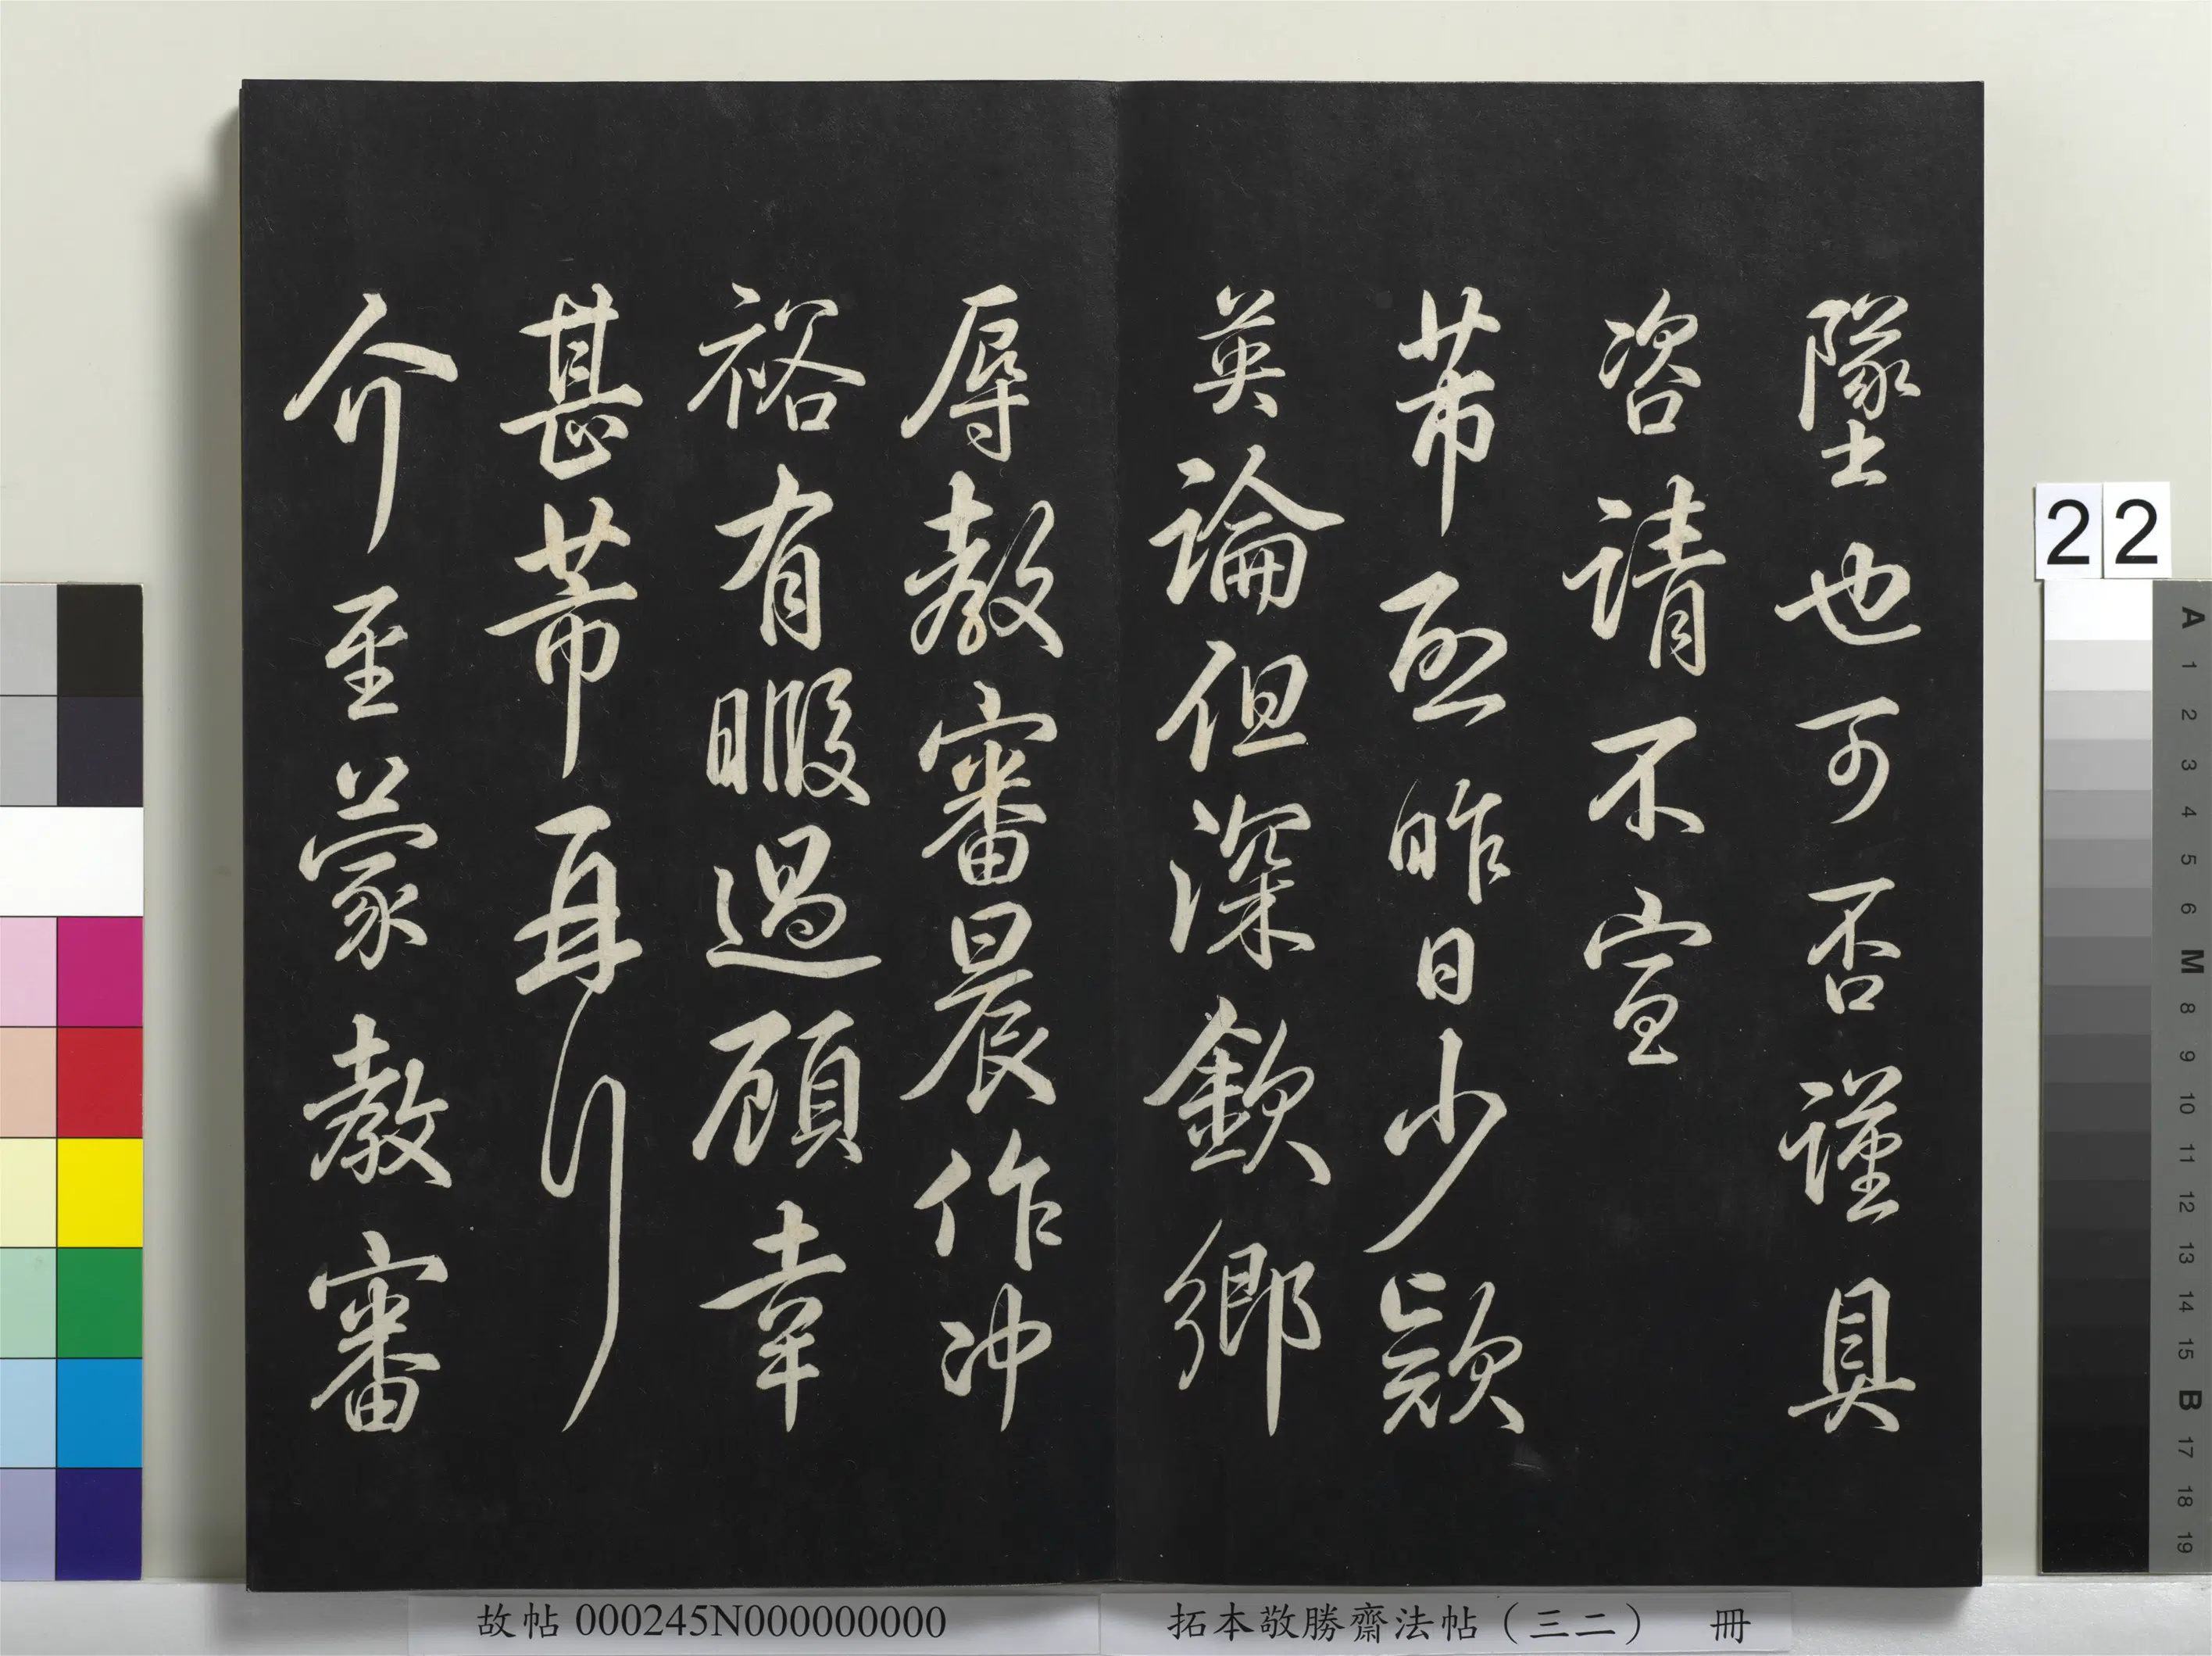 墜也可否謹具
咨請不宣
芾啟昨日少款
英論但深欽鄉
辱教審晨作冲
裕有暇過顧幸
甚芾頓首
介至蒙教審
22
A 1 2 3 4 5 6 M 8 9 10 11 12 13 14 15 B 17 18 19
故帖000245N000000000
拓本敬勝齋法帖（三二） 冊